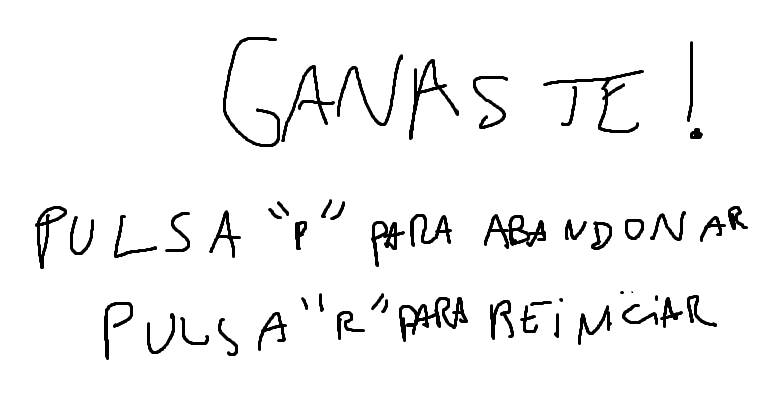 GANASTE!
PULSA "P" PARA ABANDONAR
PULSA "R" PARA REINICIAR